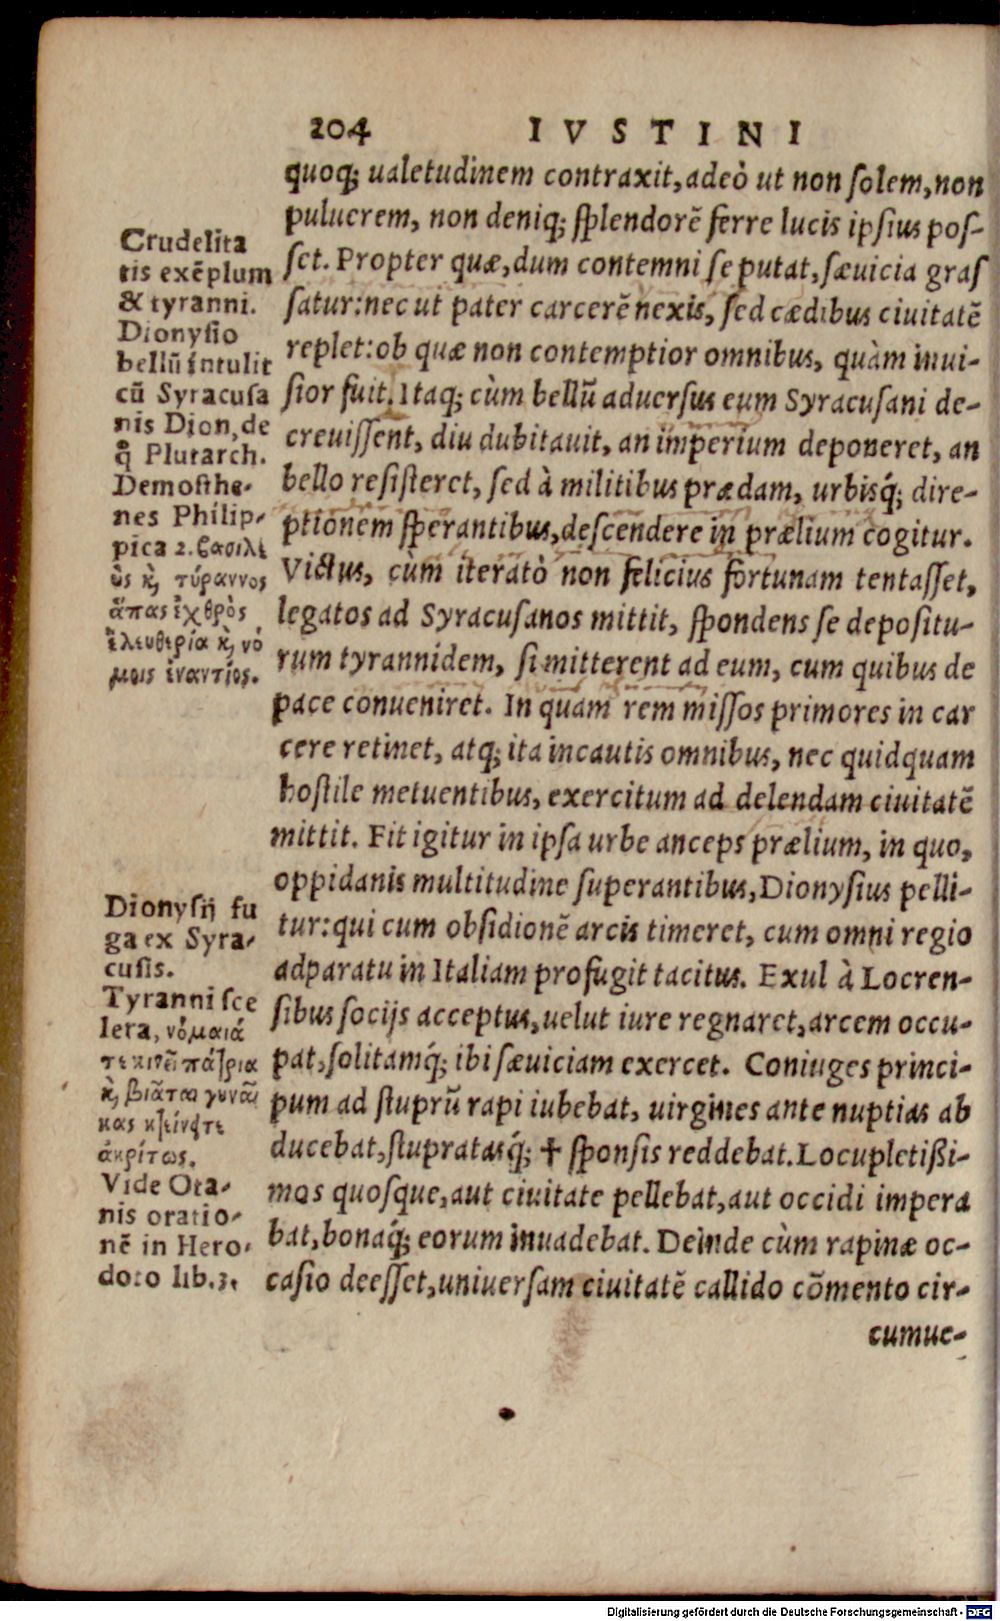 204 IVSTINI
quoq; ualetudinem contraxit, adeò ut non ſolem, non
puluerem, non deniq; ſplendorē ferre lucis ipſius poſ-
ſet. Propter quæ, dum contemni ſe putat, ſæuicia graſ
ſatur: nec ut pater carcerē nexis, ſed cædibus ciuitatē
replet: ob quæ non contemptior omnibus, quàm inui-
ſior fuit. Itaq; cùm bellū aduerſus eum Syracuſani de-
creuiſſent, diu dubitauit, an imperium deponeret, an
bello reſiſteret, ſed à militibus prædam, urbisq́; dire-
ptionem ſperantibus, deſcendere in prælium cogitur.
Victus, cùm iteratò non felicius fortunam tentaſſet,
legatos ad Syracuſanos mittit, ſpondens ſe depoſitu-
rum tyrannidem, ſi mitterent ad eum, cum quibus de
pace conueniret. In quam rem miſſos primores in car
cere retinet, atq; ita incautis omnibus, nec quidquam
hoſtile metuentibus, exercitum ad delendam ciuitatē
mittit. Fit igitur in ipſa urbe anceps prælium, in quo,
oppidanis multitudine ſuperantibus, Dionyſius pelli-
tur: qui cum obſidionē arcis timeret, cum omni regio
adparatu in Italiam profugit tacitus. Exul à Locren-
ſibus ſocijs acceptus, uelut iure regnaret, arcem occu-
pat, ſolitamq́; ibi ſæuiciam exercet. Coniuges princi-
pum ad ſtuprū rapi iubebat, uirgines ante nuptias ab
ducebat, ſtupratasq́; ✝ ſponſis reddebat. Locupletißi-
mos quoſque, aut ciuitate pellebat, aut occidi impera
bat, bonaq́; eorum inuadebat. Deinde cùm rapinæ oc-
caſio deeſſet, uniuerſam ciuitatē callido cōmento cir-
cumue-
Crudelita
tis exēplum
& tyranni.
Dionyſio
bellū intulit
cū Syracuſa
nis Dion, de
q̊ Plutarch.
Demoſthe-
nes Philip-
pica 2. βασιλ
ὺς κ, τύραννος
ἅπας ἐχθρὸς
ἐλευθερία κ, νό
μοις ἐναντίος.
Dionyſij fu
ga ex Syra-
cuſis.
Tyranni ſce
lera, νόμαιά
τε κινεῖ πάτρια
κ, βιᾶται γυναῖ
κας κτείνει τε
ἀκρίτως.
Vide Ota-
nis oratio-
nē in Hero-
doto lib. 3.
Digitalisierung gefördert durch die Deutsche Forschungsgemeinschaft - DFG